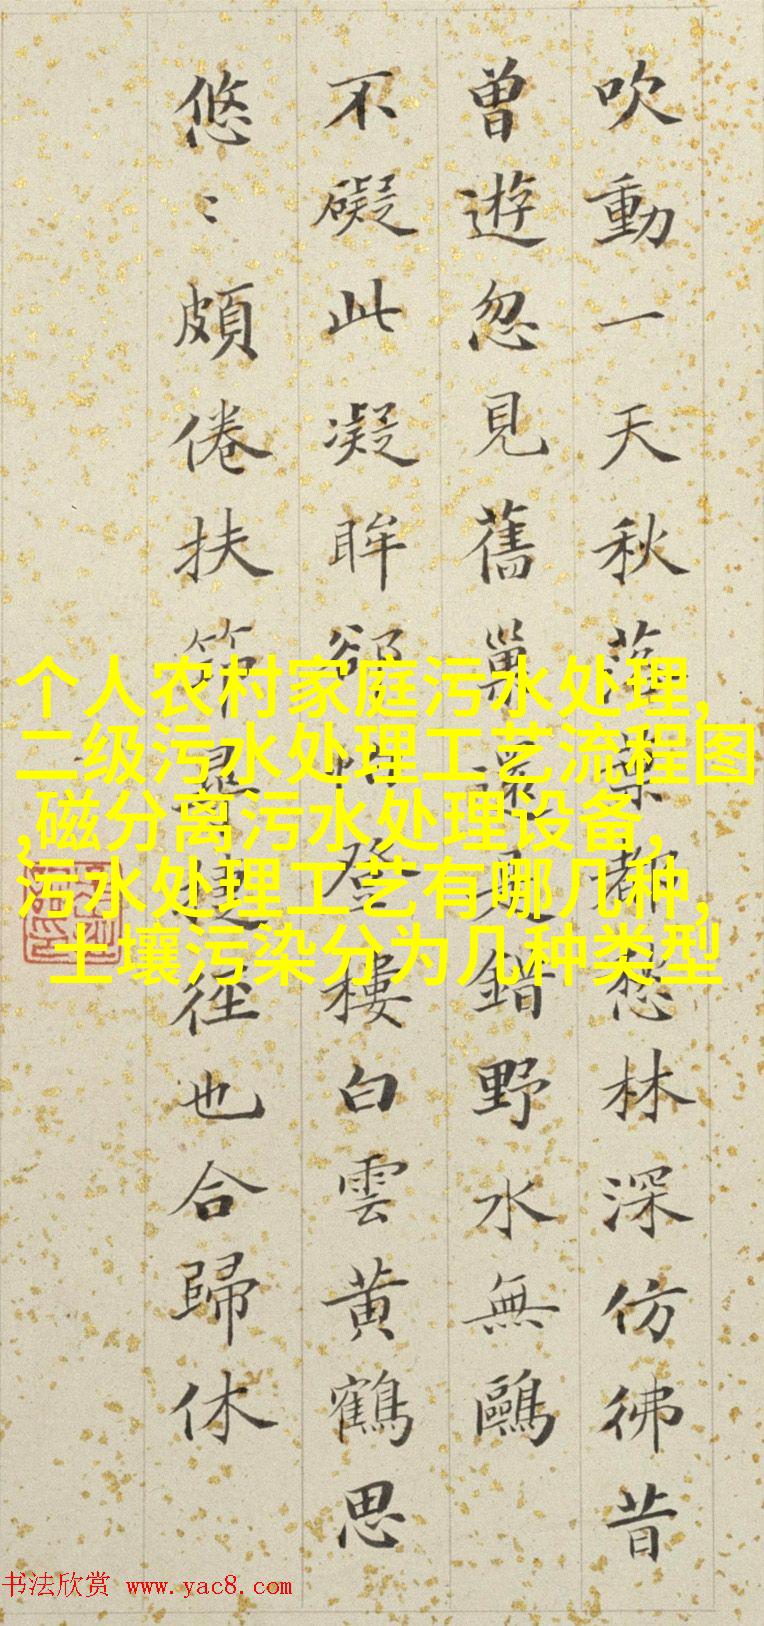 吹動一天秋落葉都愁林深仿彿昔
曾遊忽見舊巢還錯野水無鷗
不礙此凝眸卻怕登樓白雲黃鶴思
悠〻頗倦扶筇捷徑也合歸休
个人农村家庭污水处理,
二级污水处理工艺流程图
,磁分离污水处理设备,
污水处理工艺有哪几种,
土壤污染分为几种类型
书法欣赏 www.yac8.com